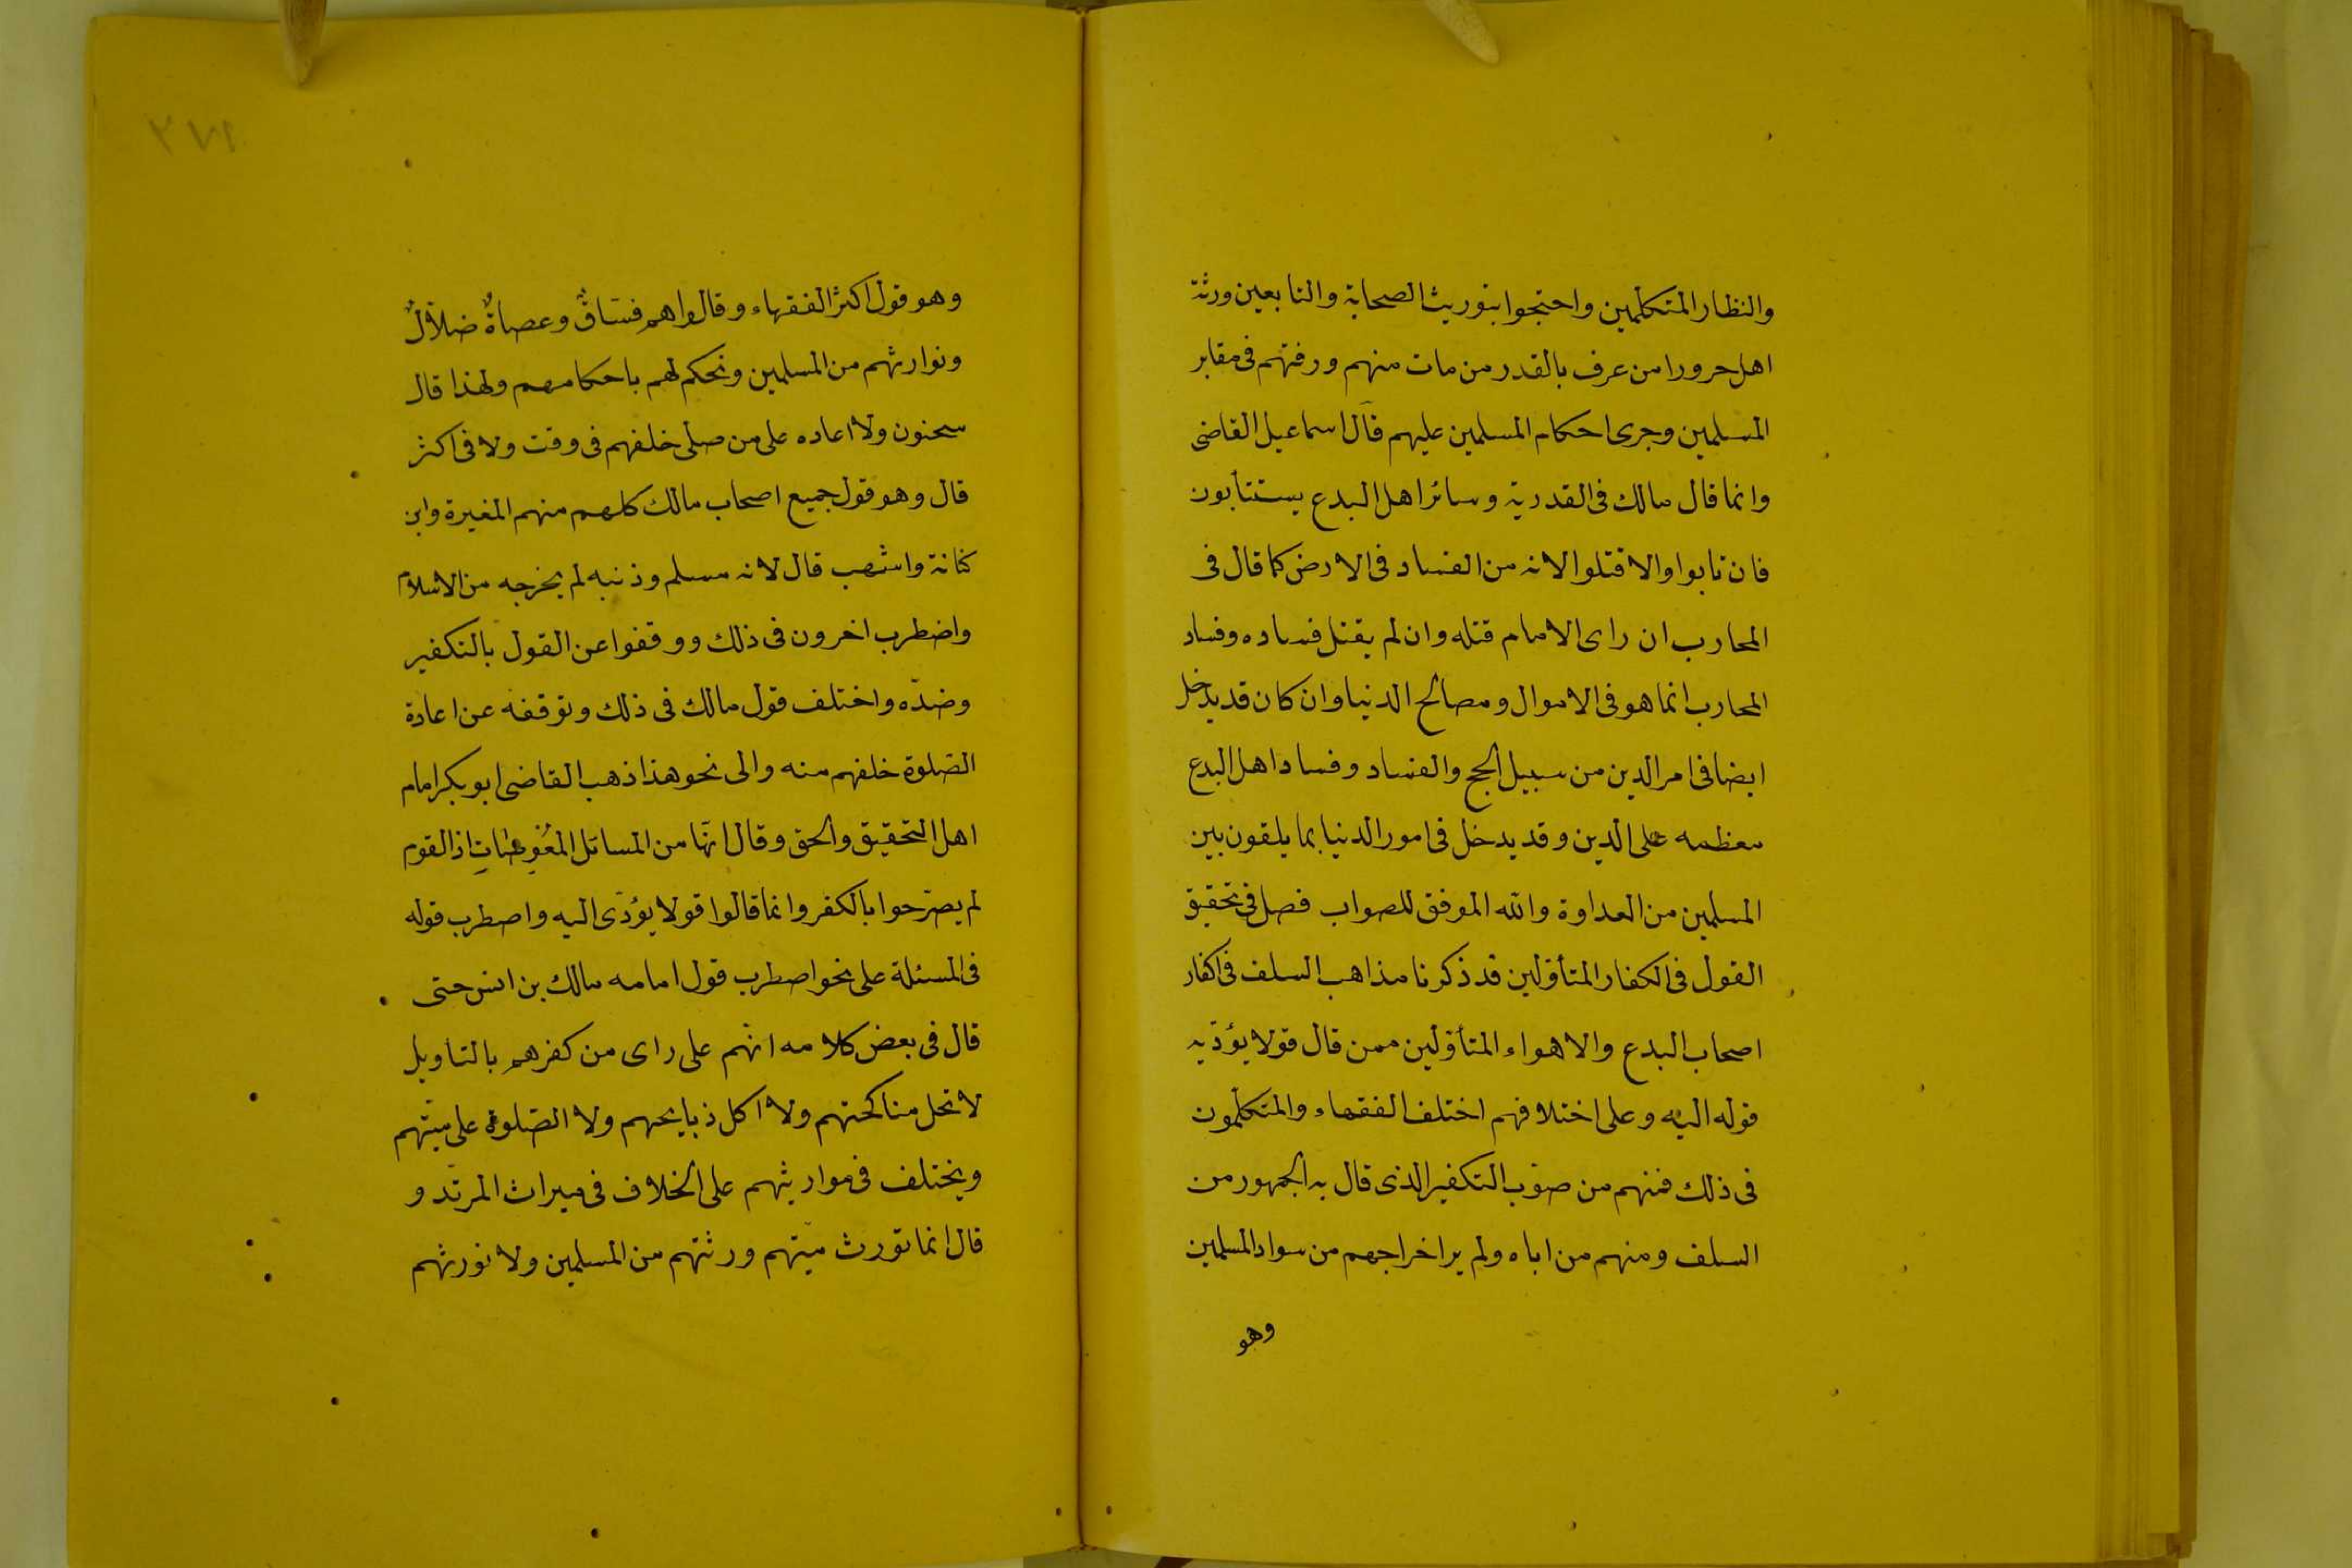 والنظار المتكلمين واحتجوا بتوريث الصحابة والتابعين ورثة
اهل حرورا من عرف بالقدر من مات منهم ورفتهم فى مقابر
المسلمين وجرى احكام المسلمين عليهم قال اسماعيل القاضى
وانما قال مالك فى القدرية وسائر اهل البدع يستتابون
فان تابوا والا قتلوا لانه من الفساد فى الارض كما قال فى
المحارب ان راى الامام قتله وان لم يقتل فساده وفساد
المحارب انما هو فى الاموال ومصالح الدنيا وان كان قد يدخل
ايضا فى امر الدين من سبيل الحج والفساد وفساد اهل البدع
معظمه على الدين وقد يدخل فى امور الدنيا بما يلقون بين
المسلمين من العداوة والله الموفق للصواب فصل فى تحقيق
القول فى الكفار المتأوّلين قد ذكرنا مذاهب السلف فى اكفار
اصحاب البدع والاهواء المتأوّلين ممن قال قولا يؤدّيه
قوله اليه وعلى اختلافهم اختلف الفقهاء والمتكلّمون
فى ذلك فمنهم من صوّب التكفير الذى قال به الجمهور من
السلف ومنهم من اباه ولم ير اخراجهم من سواد المسلمين
وهو
٢٧١
وهو قول اكثر الفقهاء وقالوا هم فسّاقٌ وعصاةٌ ضلاّلٌ
ونوارثهم من المسلمين ونحكم لهم باحكامهم ولهذا قال
سحنون ولا اعاده على من صلّى خلفهم فى وقت ولا فى اكثر
قال وهو قول جميع اصحاب مالك كلهم منهم المغيرة وابن
كنانة واشهب قال لانه مسلم وذنبه لم يخرجه من الاسلام
واضطرب اخرون فى ذلك ووقفوا عن القول بالتكفير
وضدّه واختلف قول مالك فى ذلك وتوقفه عن اعادة
الصّلوة خلفهم منه والى نحو هذا ذهب القاضى ابو بكر امام
اهل التحقيق والحق وقال انّها من المسائل المُعْوِصَاتِ اذ القوم
لم يصرّحوا بالكفر وانما قالوا قولا يؤدّى اليه واضطرب قوله
فى المسئلة على نحو اضطرب قول امامه مالك بن انس حتى
قال فى بعض كلامه انّهم على راى من كفرهم بالتاويل
لا تحل مناكحتهم ولا اكل ذبايحهم ولا الصّلوة على ميّتهم
ويختلف فى مواريثهم على الخلاف فى ميراث المرتدّ و
قال انما تورث ميّتهم ورثتهم من المسلمين ولا نورثهم